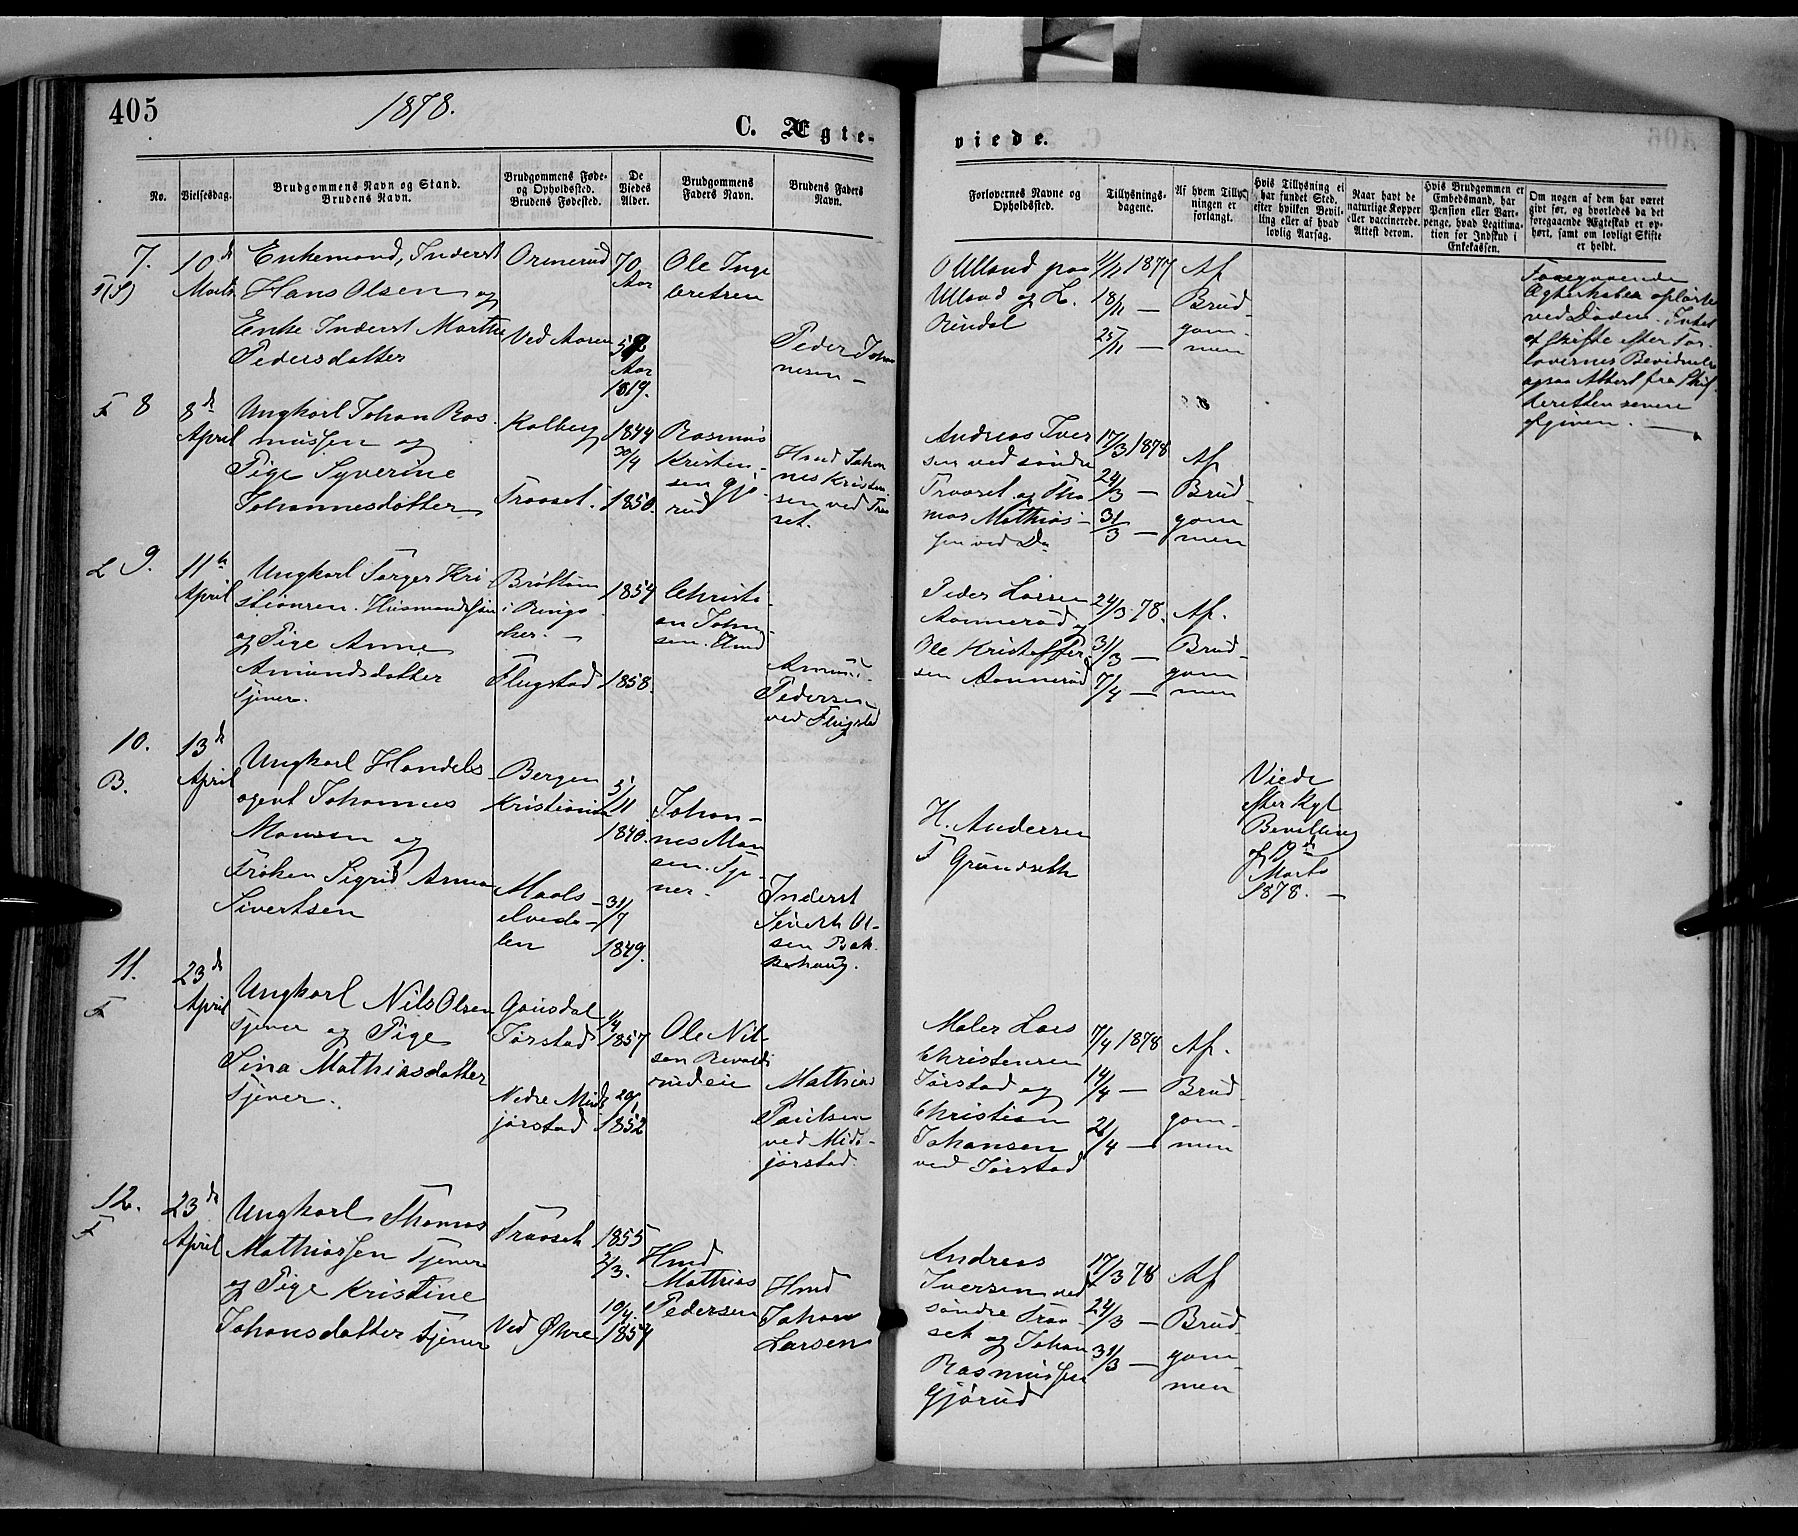 405
1878.
C. Ægte-
viede.
No.
Vielsesdag.
Brudgommens Navn og Stand.
Brudens Navn.
Brudgommens Føde-
og Opholdssted.
Brudens Fødested.
De
Viedes
Alder.
Brudgommens
Faders Navn.
Brudens Faders
Navn.
Forlovernes Navne og
Opholdssted.
Tillysnings-
dagene.
Af hvem Tillys-
ningen er
forlangt.
Hvis Tillysning ei
har fundet Sted,
efter hvilken Bevil-
ling eller af hvad
lovlig Aarsag.
Naar havt de
naturlige Kopper
eller vaccinerede.
Attest derom.
Hvis Brudgommen er
Embedsmand, har
Pension eller Vart-
penge, hvad Legitima-
tion for Indskud i
Enkekassen.
Om nogen af dem har været
givt før, og hvorledes da det
foregaaende Ægteskab er op-
hørt, samt om lovligt Skifte
er holdt.
7.
10de
Marts
Enkemand, Inderst
Hans Olsen og
Enke Inderst Marthe
Pedersdatter
Ormerud
Ved Aaren
70
Aar
Aar
1819.
Ole Inge
bretsen
Peder Johan
nesen
O Ulland paa
Ulland og L.
Rindal
11/11 1877
18/11 —
25/11 —
Af
Brud-
gom-
men
Foregaaende
Ægteskaber opløste
ved Døden. Intet
at skifte efter For-
lovernes Bevidnelse
ogsaa Attest fra Skif
teretten senere
afgiven. —
F 8
8de
April
Ungkarl Johan Ras
mussen og
Pige Syverine
Johannesdatter
Kalberg
Traaset.
1844
30/4
1850.
Rasmus
Kristen-
sen Gjø-
rud
Hmd Johan
nes Kristen
sen ved Traa
set.
Andreas Iver
sen ved søndre
Traaset og Tho
mas Mathias-
sen ved Do
17/3 1878
24/3 —
31/3 —
Af
Brud-
gom
men
L 9.
11te
April
Ungkarl Torger Kri
stiansen. Husmandssøn
og Pige Anne
Amundsdatter
Tjener.
Brøttum
i Rings
aker. —
Flugstad
1854
1858.
Christi-
an John-
sen. Hmd
Amund
Pedersen
ved Flugstad
Peder Larsen
Aannerud og
Ole Kristoffer-
sen Aannerud
24/3 78.
31/3 —
7/4 —
Af.
Brud-
gom
men
10.
B.
13de
April
Ungkarl Handels
agent Johannes
Monsen og
Frøken Sigrid Anna
Sivertsen
Bergen
Kristiania
Maals-
elveda-
len
5/11
1840.
31/7
1849.
Johan-
nes Mon
sen. Tje-
ner.
Inderst
Sivert Ol-
sen Bak
kehaug.
H. Andersen
T Grundseth
Viede
efter Kgl
Bevilling
Marts
1878. —
11.
F
23de
April
Ungkarl Nils Olsen
Tjener og Pige
Sina Mathiasdatter
Tjener.
Gausdal
Jørstad
Nedre Mids
jørstad
1/4
1857
29/1
1852
Ole Nil-
sen Revolds
rudeie
Mathias
Paulsen
ved Mids-
jørstad.
Maler Lars
Christensen
Jørstad og
Christian
Johansen
ved Jørstad
7/4 1878
14/4 —
21/4 —
Af.
Brud-
gom-
men
12.
F
23de
April
Ungkarl Thomas
Mathiassen Tjener
og Pige Kristine
Johansdatter Tjener
Traaset
Ved Økre
1855
2/3.
10/4
1854
Hmd
Mathias
Pedersen
Hmd
Johan
Larsen
Andreas
Iversen ved
søndre Traa-
set og Johan
Rasmussen
Gjørud
17/3 78
24/3 —
31/3 —
Af
Brud-
gom-
men